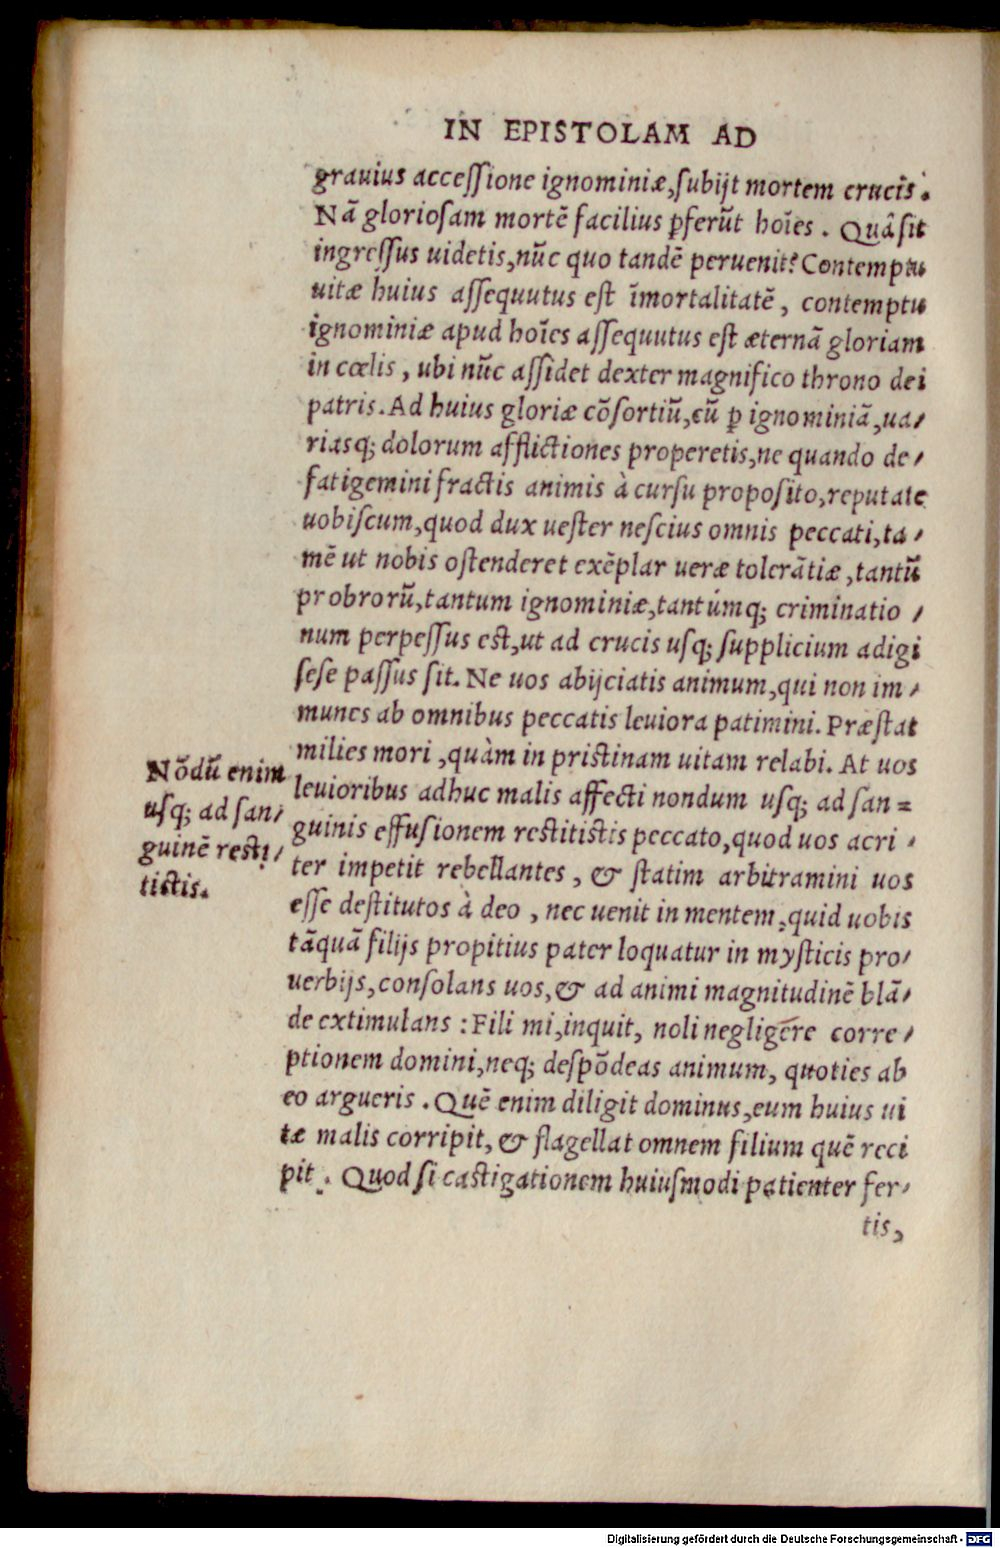 IN EPISTOLAM AD
grauius accessione ignominiæ, subijt mortem crucis.
Nã gloriosam mortẽ facilius ꝑferũt hoĩes. Quã sit
ingressus uidetis, nũc quo tandẽ peruenit? Contemptu
uitæ huius assequutus est ĩmortalitatẽ, contemptu
ignominiæ apud hoĩes assequutus est æternã gloriam
in cœlis, ubi nũc assidet dexter magnifico throno dei
patris. Ad huius gloriæ cõsortiũ, cũ ꝑ ignominiã, ua/
riasq; dolorum afflictiones properetis, ne quando de/
fatigemini fractis animis à cursu proposito, reputate
uobiscum, quod dux uester nescius omnis peccati, ta/
mẽ ut nobis ostenderet exẽplar ueræ tolerãtiæ, tantũ
probrorũ, tantum ignominiæ, tantúmq; criminatio/
num perpessus est, ut ad crucis usq; supplicium adigi
sese passus sit. Ne uos abijciatis animum, qui non im/
munes ab omnibus peccatis leuiora patimini. Præstat
milies mori, quàm in pristinam uitam relabi. At uos
Nõdũ enim
usq; ad san/
guinẽ resti/
tistis.
leuioribus adhuc malis affecti nondum usq; ad san=
guinis effusionem restitistis peccato, quod uos acri/
ter impetit rebellantes, & statim arbitramini uos
esse destitutos à deo, nec uenit in mentem, quid uobis
tãquã filijs propitius pater loquatur in mysticis pro/
uerbijs, consolans uos, & ad animi magnitudinẽ blã/
de extimulans: Fili mi, inquit, noli negligere corre/
ptionem domini, neq; despõdeas animum, quoties ab
eo argueris. Quẽ enim diligit dominus, eum huius ui
tæ malis corripit, & flagellat omnem filium quẽ reci
pit. Quod si castigationem huiusmodi patienter fer/
tis,
Digitalisierung gefördert durch die Deutsche Forschungsgemeinschaft - DFG